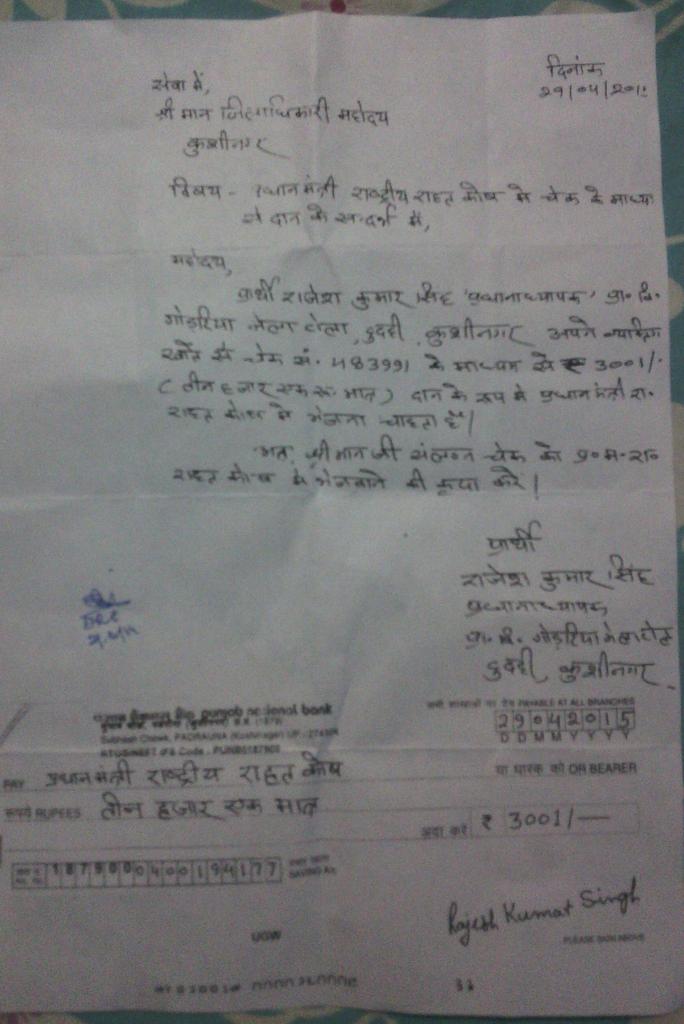 दिनांक
29/04/201
सेवा में,
श्री मान जिलाधिकारी महोदय
कुशीनगर
विषय - प्रधानमंत्री राष्ट्रीय राहत कोष में चेक के माध्य
से दान के सन्दर्भ में,
महोदय,
प्रार्थी राजेश कुमार सिंह 'प्रधानाध्यापक' प्रा. वि.
गोड़रिया मेला टोला, दुदही, कुशीनगर अपने
खाते से चेक सं. 483991 के माध्यम से 3001/-
(तीन हजार एक रू. मात्र) दान के रूप में प्रधानमंत्री रा.
राहत कोष में भेजना चाहता है।
अतः श्रीमान जी संलग्न चेक को प्र०म०रा०
राहत कोष में भेजवाने की कृपा करे।
प्रार्थी
राजेश कुमार सिंह
प्रधानाध्यापक
प्रा. वि. गोड़रिया मेला टोला
दुदही कुशीनगर
punjab national bank
PADRAUNA (Kushinagar) UP
RTGS/NEFT IFS Code :
PAYABLE AT ALL BRANCHES
29042015
D D M M Y Y Y Y
PAY प्रधानमंत्री राष्ट्रीय राहत कोष या धारक को OR BEARER
रुपये RUPEES तीन हजार एक मात्र
अदा करें ₹ 3001/-
SAVING A/c
UGW
Rajesh Kumar Singh
PLEASE SIGN ABOVE